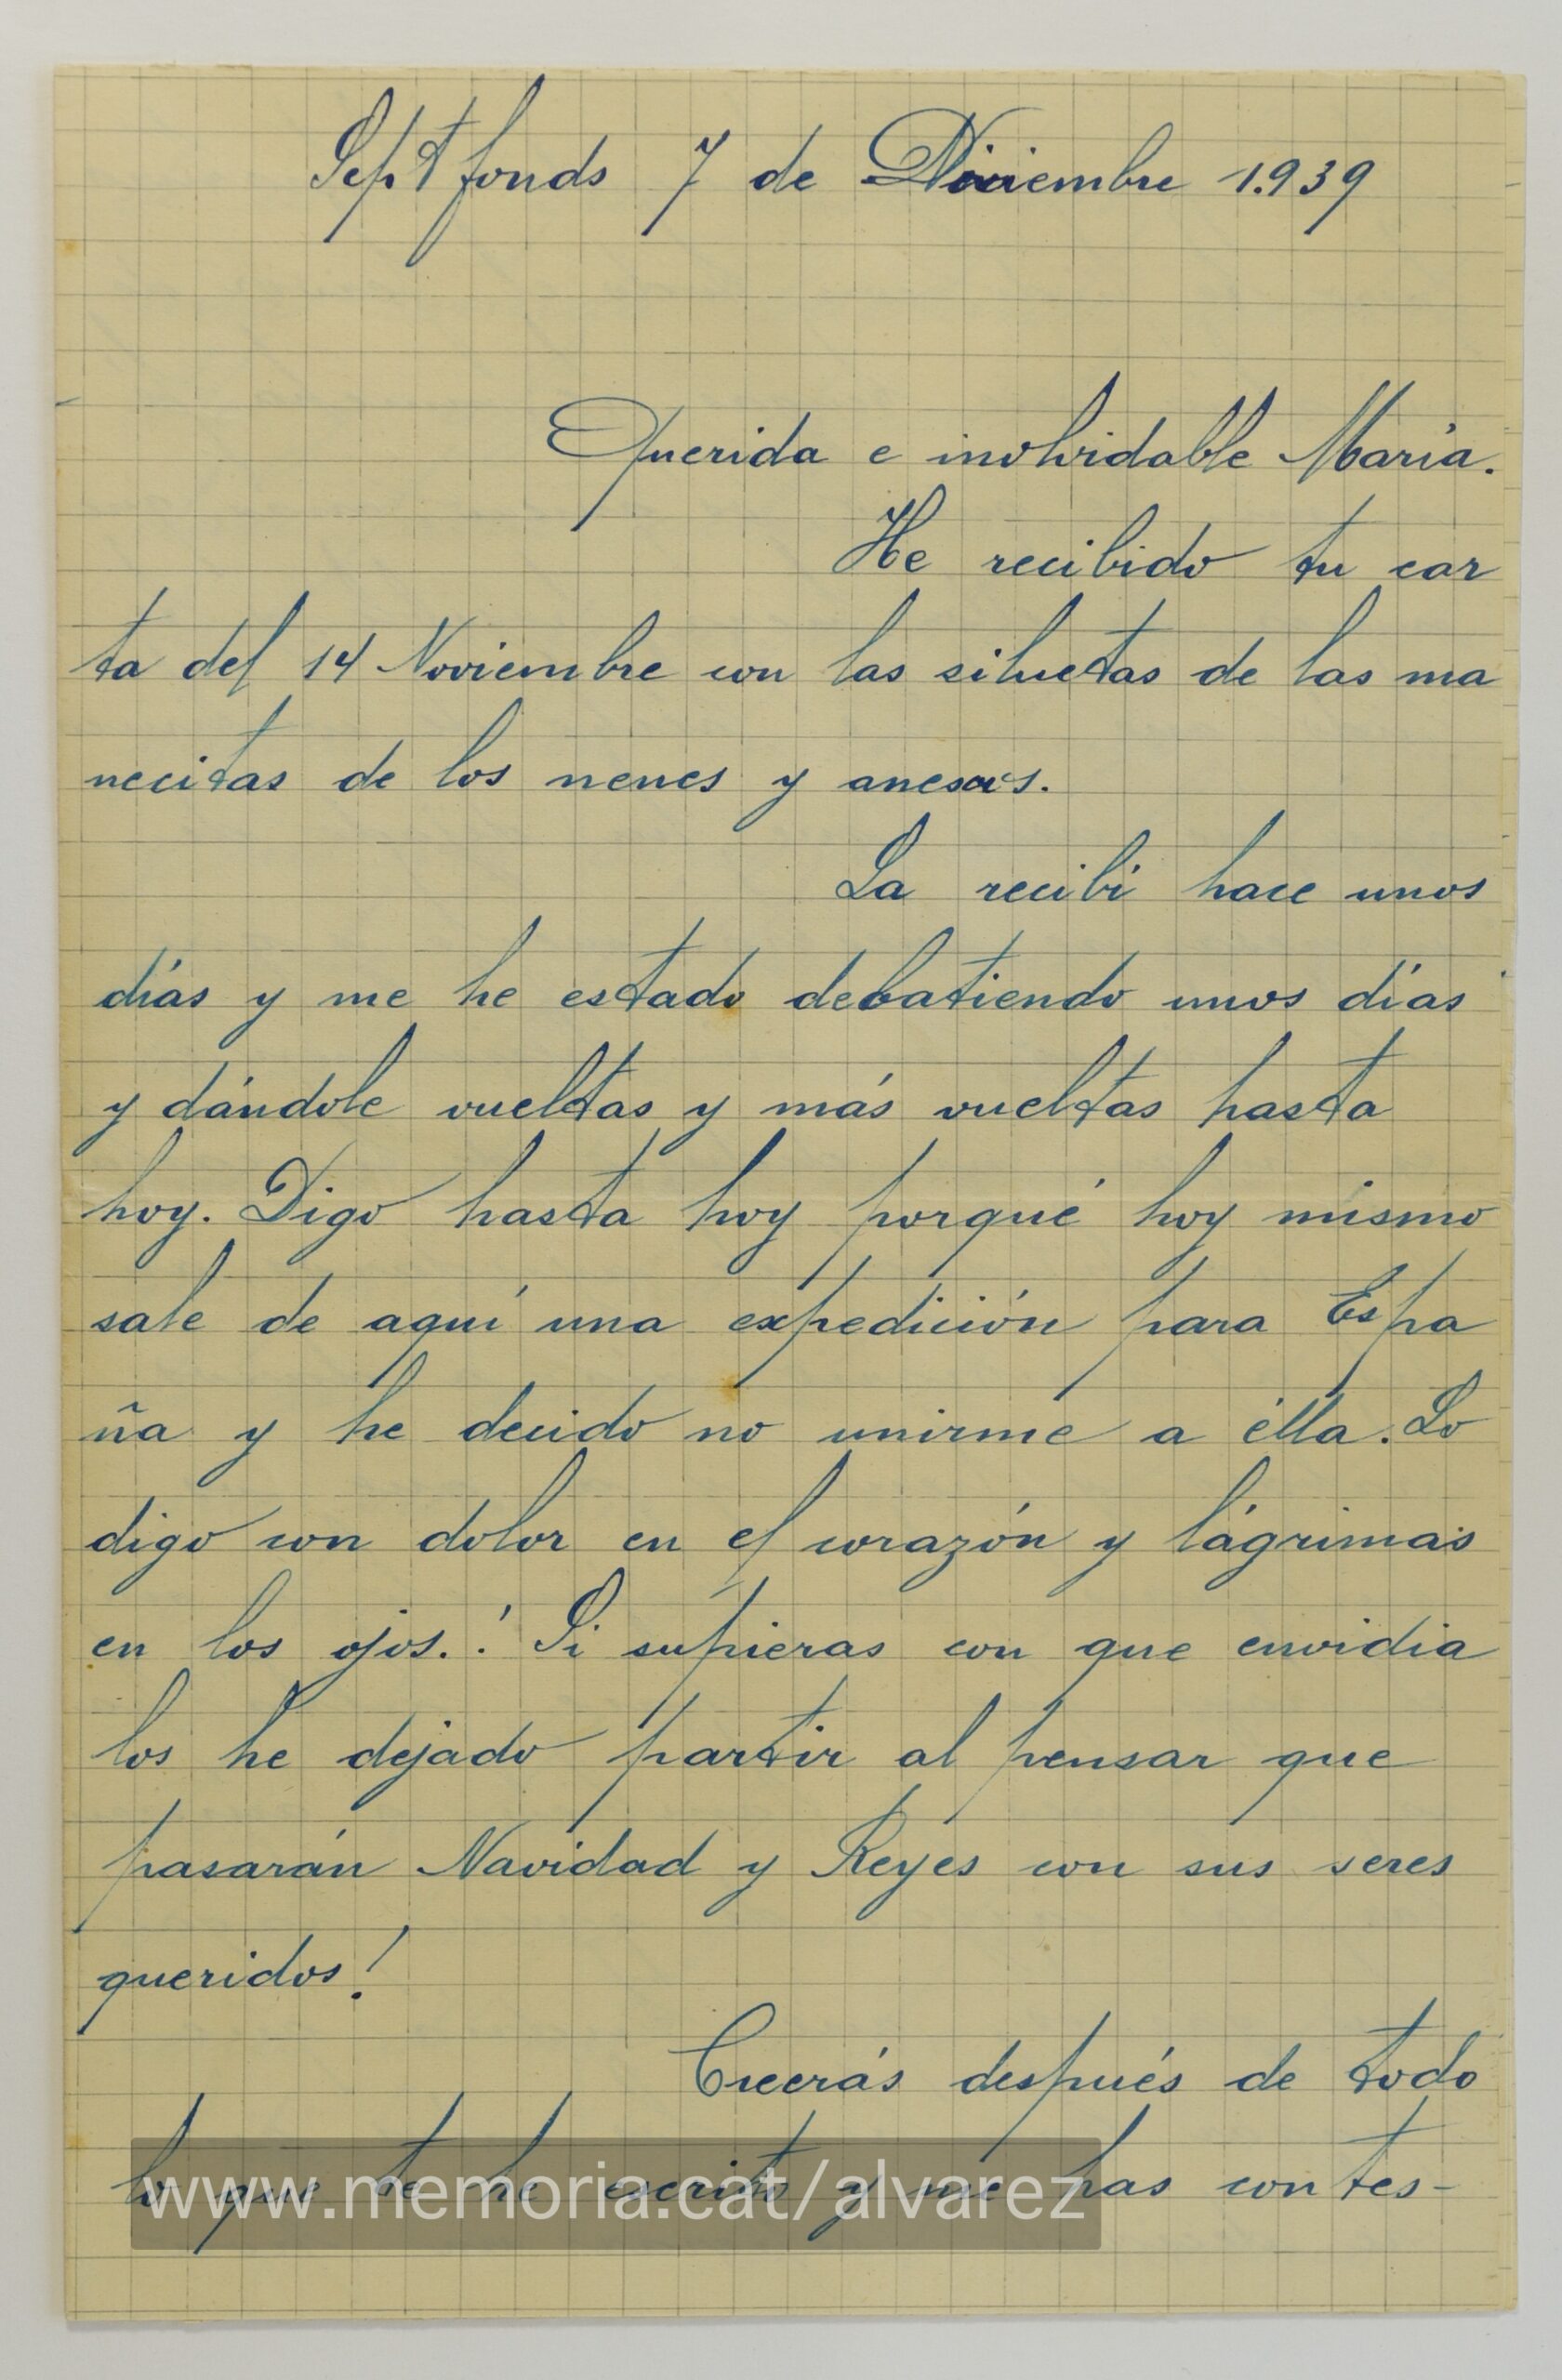 Septfonds 7 de Diciembre 1.939
Querida e inolvidable María.
He recibido tu car
ta del 14 Noviembre con las siluetas de las ma
necitas de los nenes y anexas.
La recibí hace unos
días y me he estado debatiendo unos días
y dándole vueltas y más vueltas hasta
hoy. Digo hasta hoy porqué hoy mismo
sale de aquí una expedición para Espa
ña y he decido no unirme a élla. Lo
digo con dolor en el corazón y lágrimas
en los ojos. ¡Si supieras con que envidia
los he dejado partir al pensar que
pasarán Navidad y Reyes con sus seres
queridos!
Creerás después de todo
lo que te he escrito y me has contes-
www.memoria.cat/alvarez